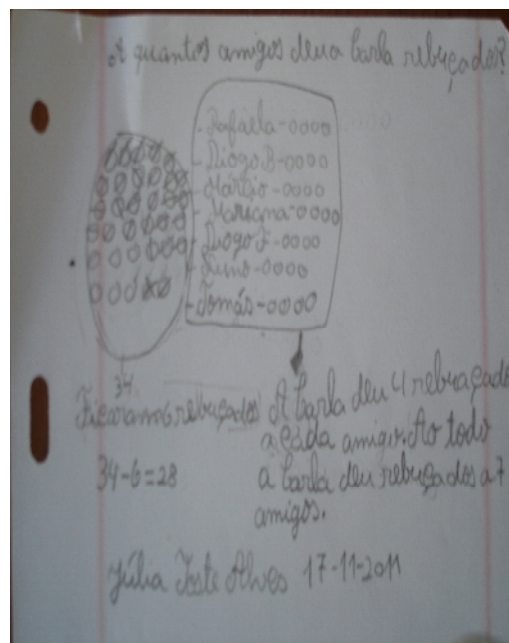 A quantos amigos deu a Carla rebuçados?
- Rafaela - 0000
- Diogo B - 0000
- Márcio - 0000
- Mariana - 0000
- Diogo F - 0000
- Nuno - 0000
- Tomás - 0000
34
Ficaram 6 rebuçados
34-6=28
A Carla deu 4 rebuçados
a cada amigo. Ao todo
a Carla deu rebuçados a 7
amigos.
Júlia Toste Alves 17-11-2011